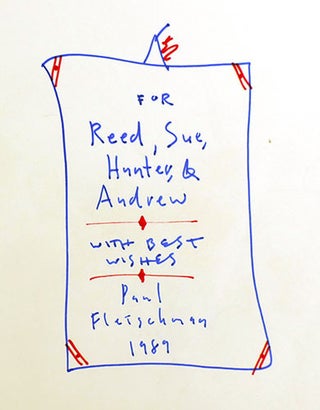 FOR
Reed, Sue,
Hunter, &
Andrew
WITH BEST
WISHES
Paul
Fleischman
1989